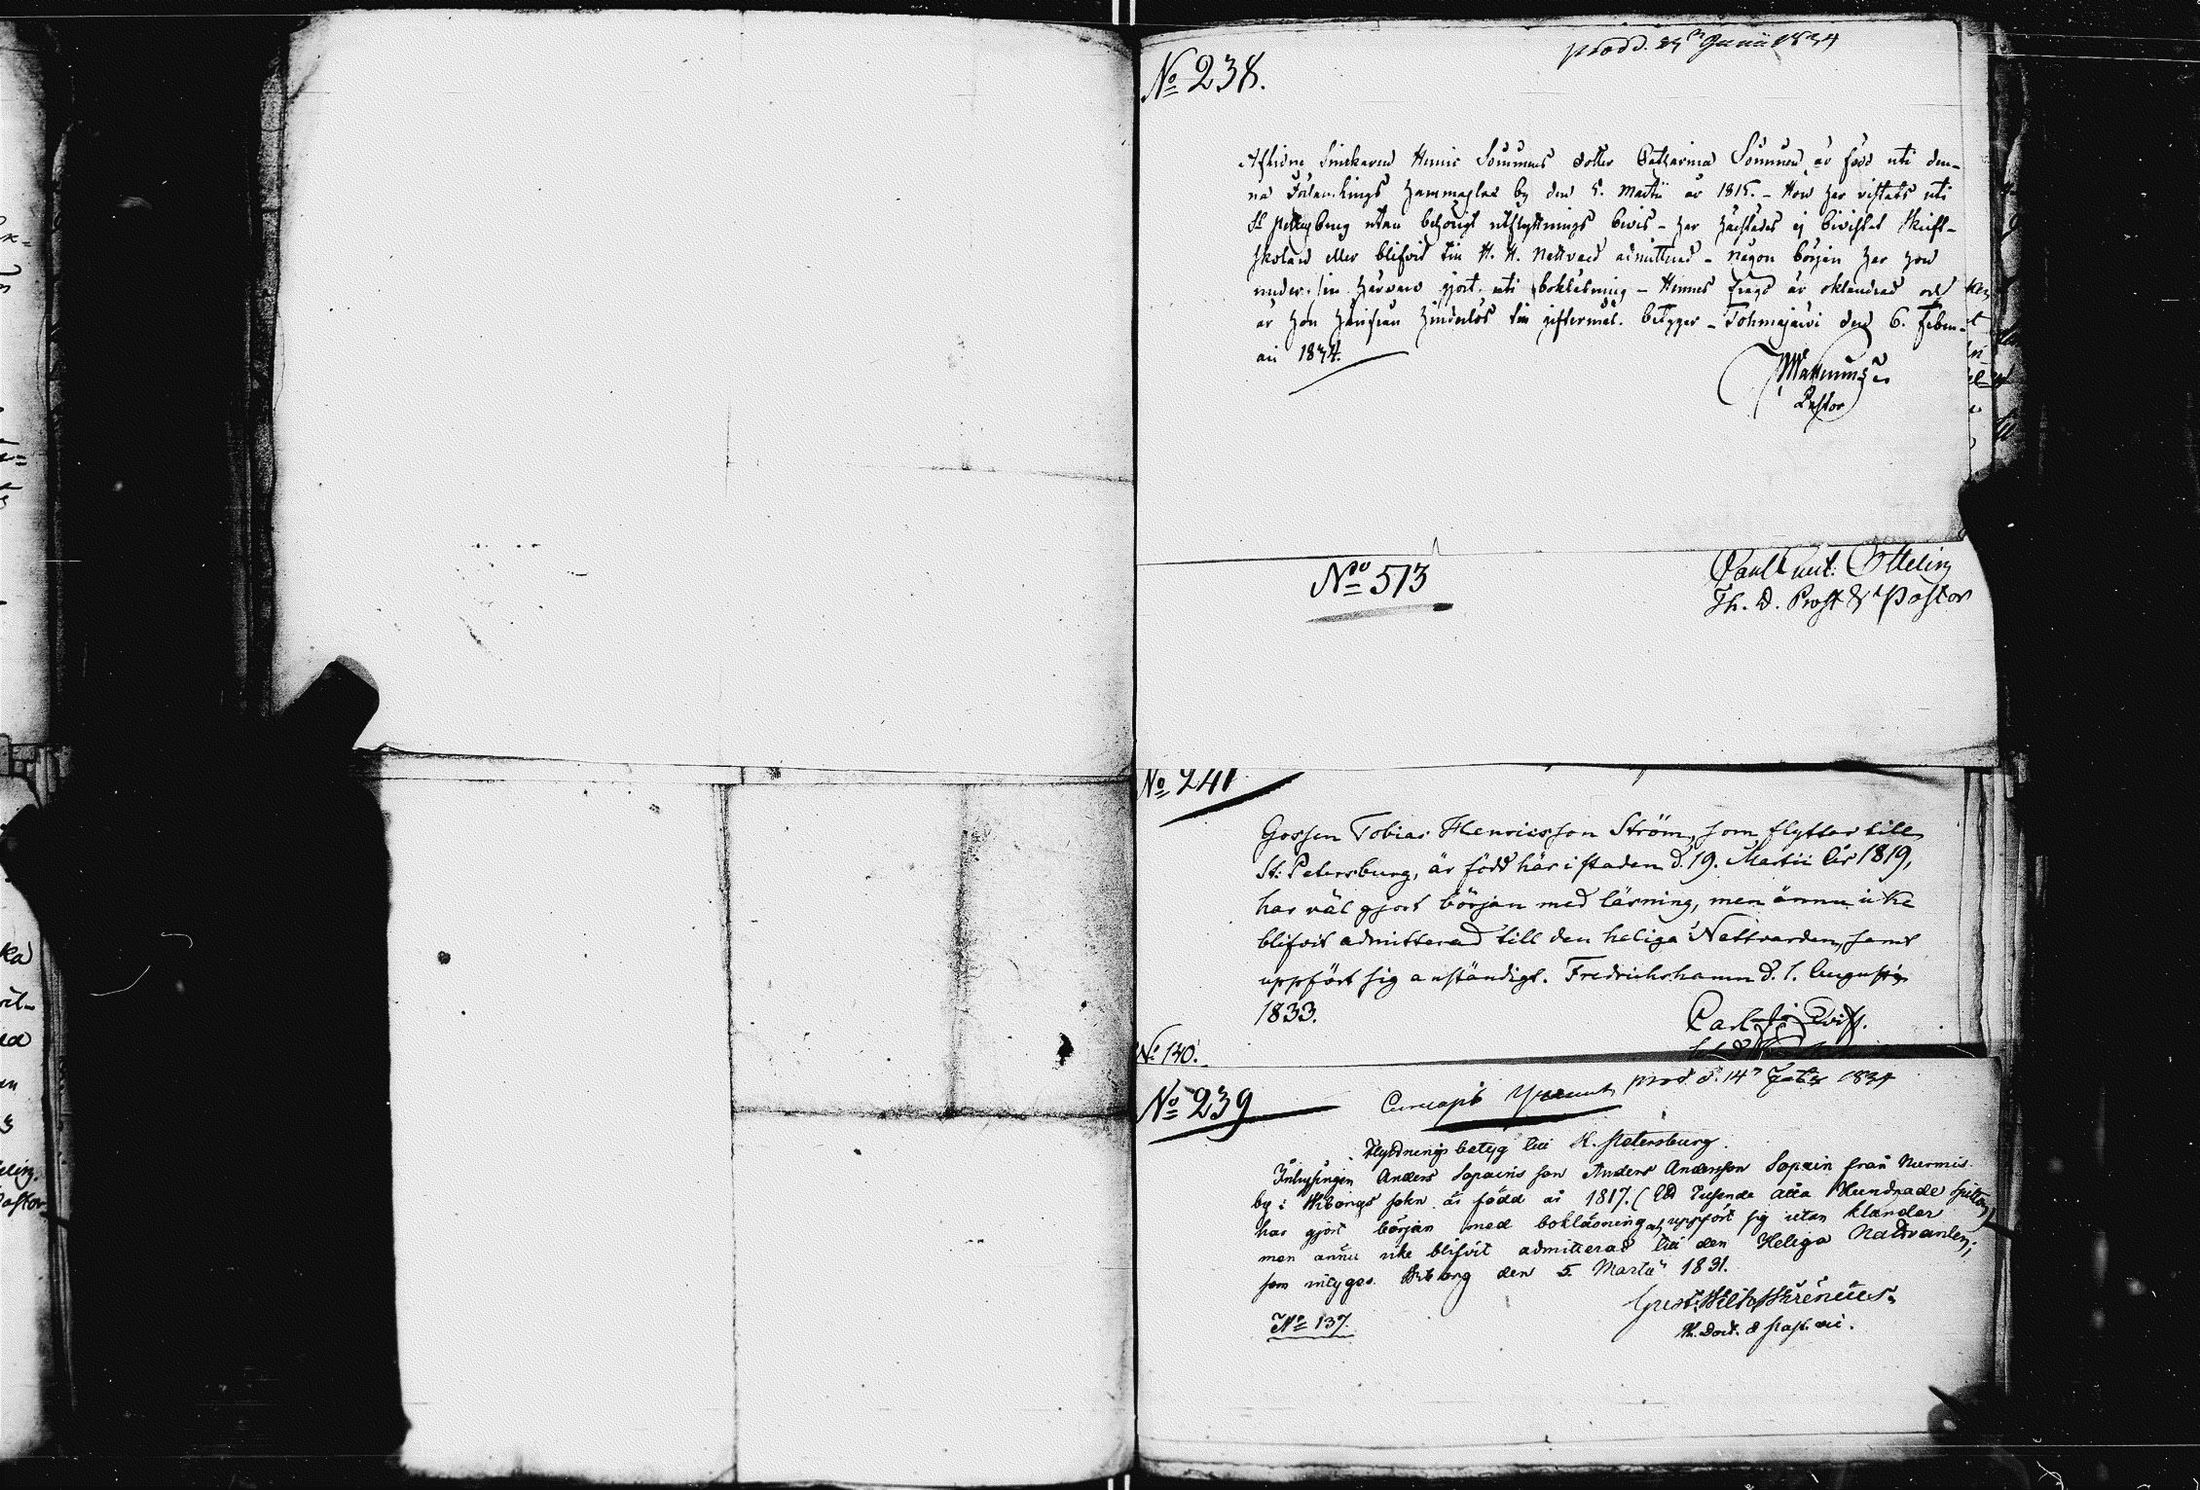 prodd. 25n Junii 1834
No 238.
Aflidne Snickaren Henric Sommens dotter Catharina Sommen, är född uti den-
na Församlings by den 5. Martii år 1815. - Hon har vistats uti
St Petersburg utan behörigt utflyttnings bevis - har härstädes ej bivistat Skrift-
skolan eller blifvit till H. H. Nattvard admitterad - någon början har hon
under sin härvaro gjort uti bokläsning - Hennes frägd är oklandrad och
är hon härifrån hinderlös till giftermål. betygar - Tohmajärvi den 6. Febru-
arii 1834.
Pastor
No 513
Paul Ottelin
Th. D. Prost & Pastor
No 241
Gossen Tobias Henricsson Ström, som flyttar till
St: Petersburg, är född här i staden d. 19. Martii år 1819,
har väl gjort början med läsning, men ännu icke
blifvit admitterad till den heliga Nattvarden, samt
uppfört sig anständigt. Fredrichshamn d. 1. Augusti
1833.
Carl
No 140.
No 239
prod d. 14n 1834
Flyttnings betyg till St. Petersburg.
Inhysingen Anders Sopains son Anders Andersson Sopain från Nurmis
by i Wiborgs sokn är född år 1817. (Ett Tusende åtta Hundrade Sjutton)
har gjort början med bokläsning och uppfört sig utan klander
men ännu icke blifvit admitterad till den Heliga Nattvarden;
som intygas. Wiborg den 5. Martii 1831.
Gust: Wilh.
No 137.